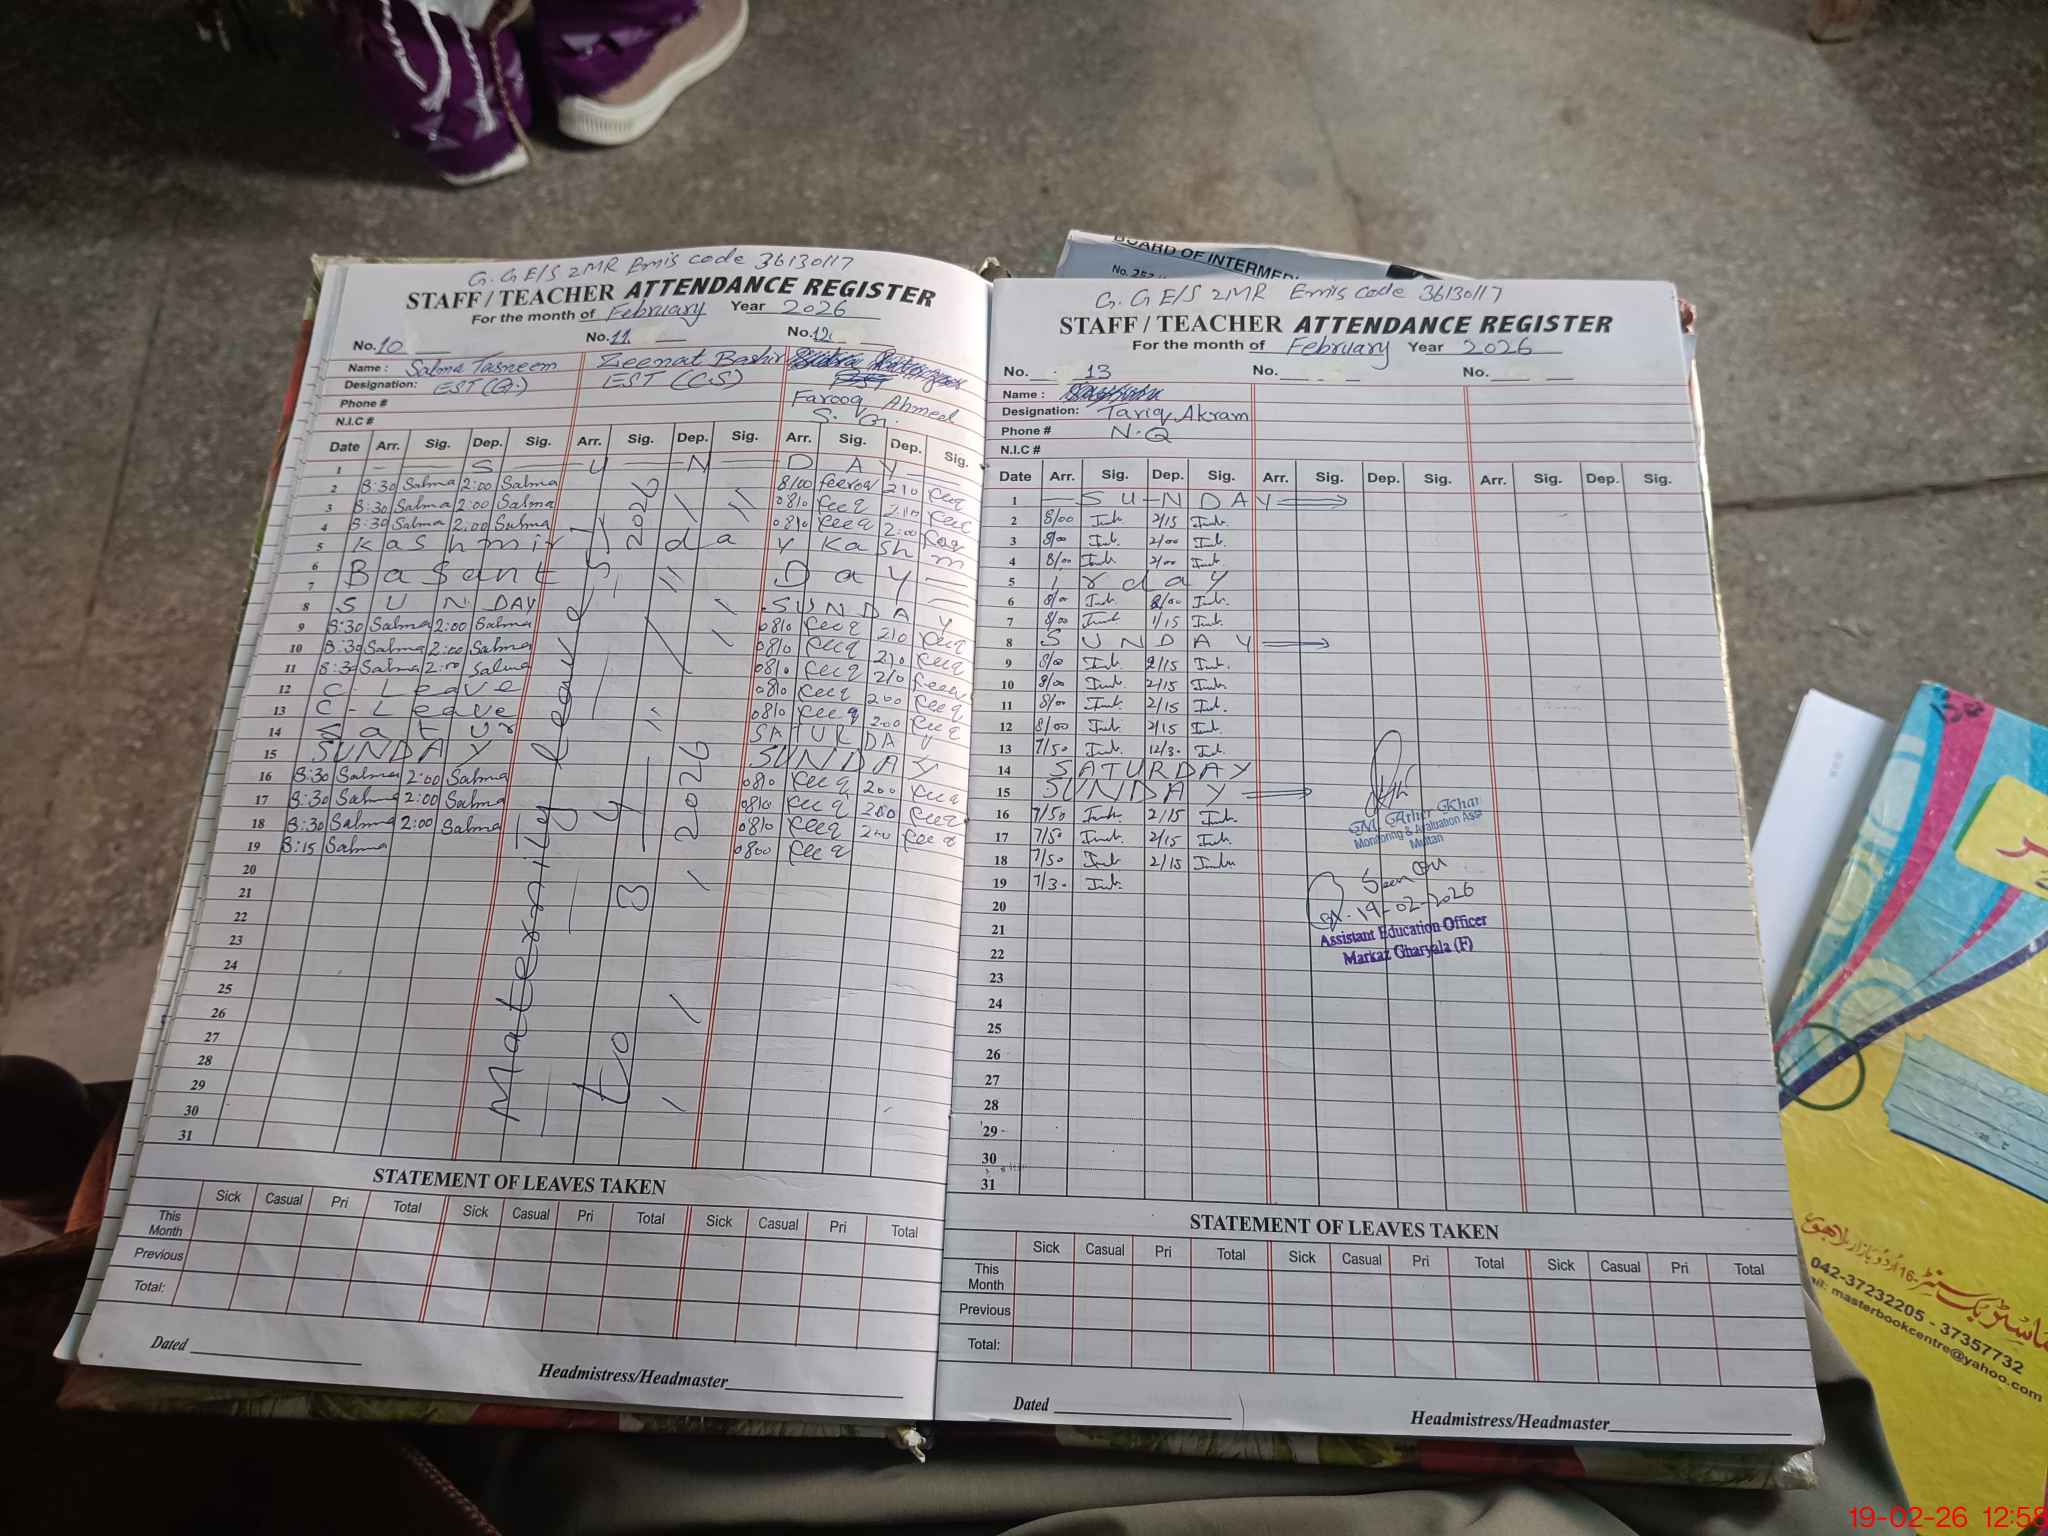 G. G E/S 2MR Emis code 36130117
STAFF / TEACHER ATTENDANCE REGISTER
For the month of February Year 2026
No. 10 No. 11 No. 12
Name : Salma Tasneem Zeenat Bashir
Designation: EST (G.) EST (CS) EST
Phone # Farooq Ahmed
N.I.C # S. G.
Date Arr. Sig. Dep. Sig. Arr. Sig. Dep. Sig. Arr. Sig. Dep. Sig.
1 S U N D A Y
2 8:30 Salma 2:00 Salma 8/00 210
3 8:30 Salma 2:00 Salma 0810 210
4 8:30 Salma 2:00 Salma 0810 2:00
5 Kashmir day Kashm
6 Basant Day
7
8 SUNDAY SUNDAY
9 8:30 Salma 2:00 Salma 0810 210
10 8:30 Salma 2:00 Salma 0810 210
11 8:30 Salma 2:00 Salma 0810 210
12 C - Leave 0810 200
13 C - Leave 0810 200
14 Satur SATURDA
15 SUNDAY SUNDAY
16 8:30 Salma 2:00 Salma 0810 200
17 8:30 Salma 2:00 Salma 0810 200
18 8:30 Salma 2:00 Salma 0810 200
19 8:15 Salma 0800
20
21
22
23
24
25
26
27
28
29
30
31
to
2026
2026
STATEMENT OF LEAVES TAKEN
Sick Casual Pri Total Sick Casual Pri Total Sick Casual Pri Total
This Month
Previous
Total:
Dated
Headmistress/Headmaster
G. G E/S 2MR Emis code 36130117
STAFF / TEACHER ATTENDANCE REGISTER
For the month of February Year 2026
No. 13 No. No.
Name :
Designation: Tariq Akram
Phone # N.Q
N.I.C #
Date Arr. Sig. Dep. Sig. Arr. Sig. Dep. Sig. Arr. Sig. Dep. Sig.
1 SUNDAY
2 8/00 2/15
3 8/00 2/00
4 8/00 2/00
5 rday
6 8/00
7 8/00 1/15
8 SUNDAY
9 8/00 2/15
10 8/00 2/15
11 8/00 2/15
12 8/00 2/15
13 7/50 12/30
14 SATURDAY
15 SUNDAY
16 7/50 2/15
17 7/50 2/15
18 7/50 2/15
19 7/30
20
21
22
23
24
25
26
27
28
29
30
31
Monitoring & Evaluation Asst
Multan
Seen
19-02-2026
Assistant Education Officer
Markaz Gharyala (F)
STATEMENT OF LEAVES TAKEN
Sick Casual Pri Total Sick Casual Pri Total Sick Casual Pri Total
This Month
Previous
Total:
Dated
Headmistress/Headmaster
BOARD OF INTERMEDI
042-37232205 - 37357732
ail: masterbookcentre@yahoo.com
19-02-26 12:58